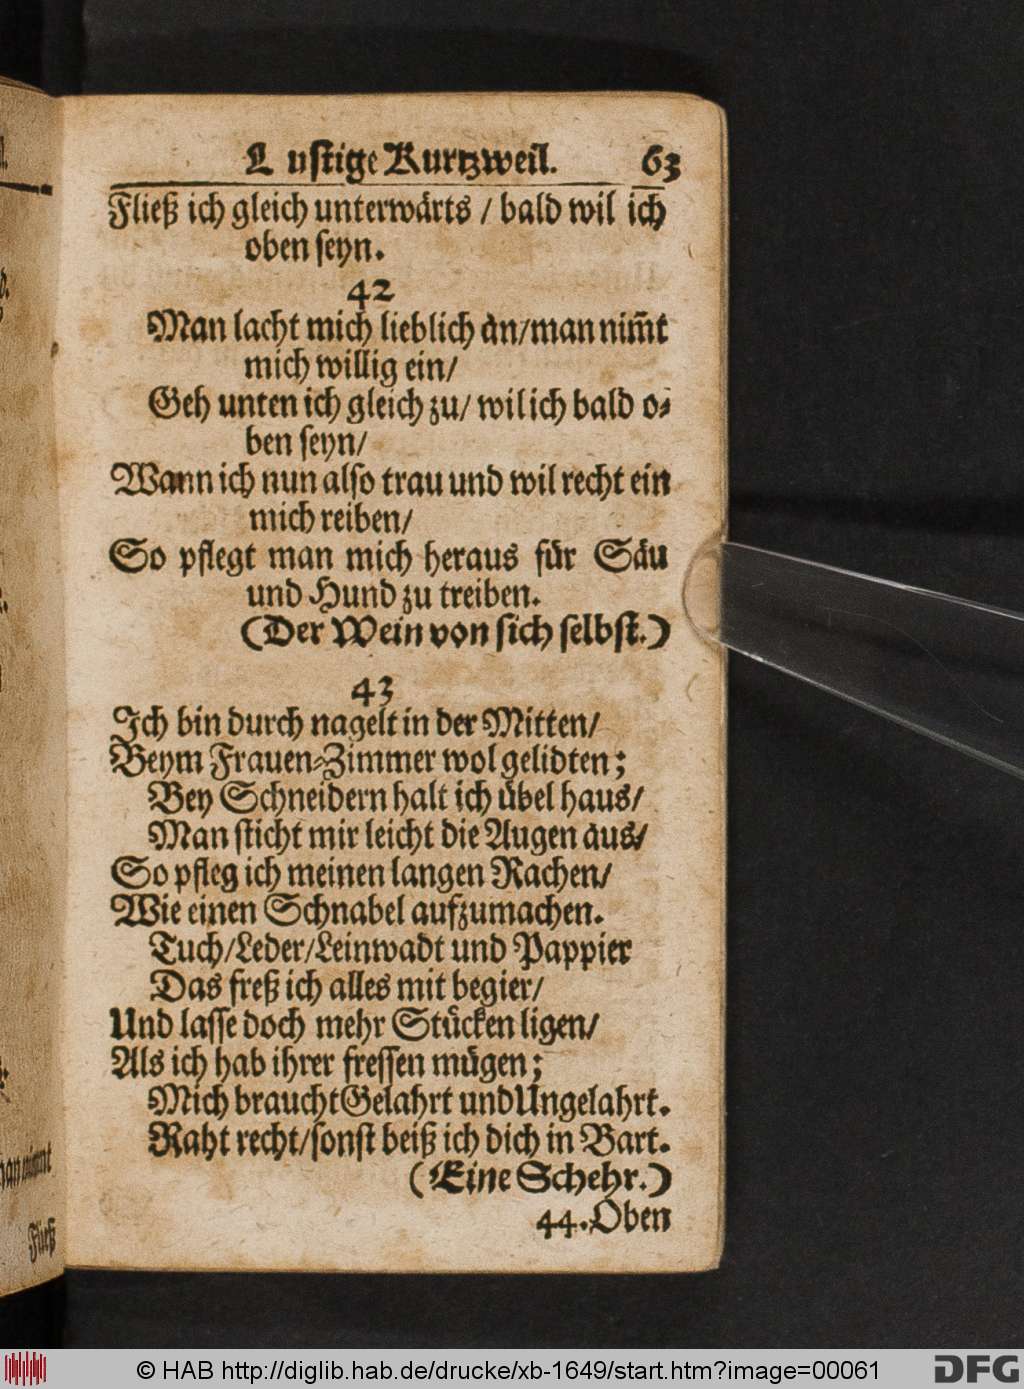 Lustige Kurtzweil. 63
Fließ ich gleich unterwärts / bald wil ich
oben seyn.
42
Man lacht mich lieblich an/man nim̃t
mich willig ein/
Geh unten ich gleich zu/ wil ich bald o-
ben seyn/
Wann ich nun also trau und wil recht ein
mich reiben/
So pflegt man mich heraus für Säu
und Hund zu treiben.
(Der Wein von sich selbst.)
43
Ich bin durch nagelt in der Mitten/
Beym Frauen-Zimmer wol gelidten;
Bey Schneidern halt ich übel haus/
Man sticht mir leicht die Augen aus/
So pfleg ich meinen langen Rachen/
Wie einen Schnabel aufzumachen.
Tuch/Leder/Leinwadt und Pappier
Das freß ich alles mit begier/
Und lasse doch mehr Stücken ligen/
Als ich hab ihrer fressen mügen;
Mich braucht Gelahrt und Ungelahrt.
Raht recht/sonst beiß ich dich in Bart.
(Eine Schehr.)
44. Oben
Fließ
© HAB http://diglib.hab.de/drucke/xb-1649/start.htm?image=00061
DFG